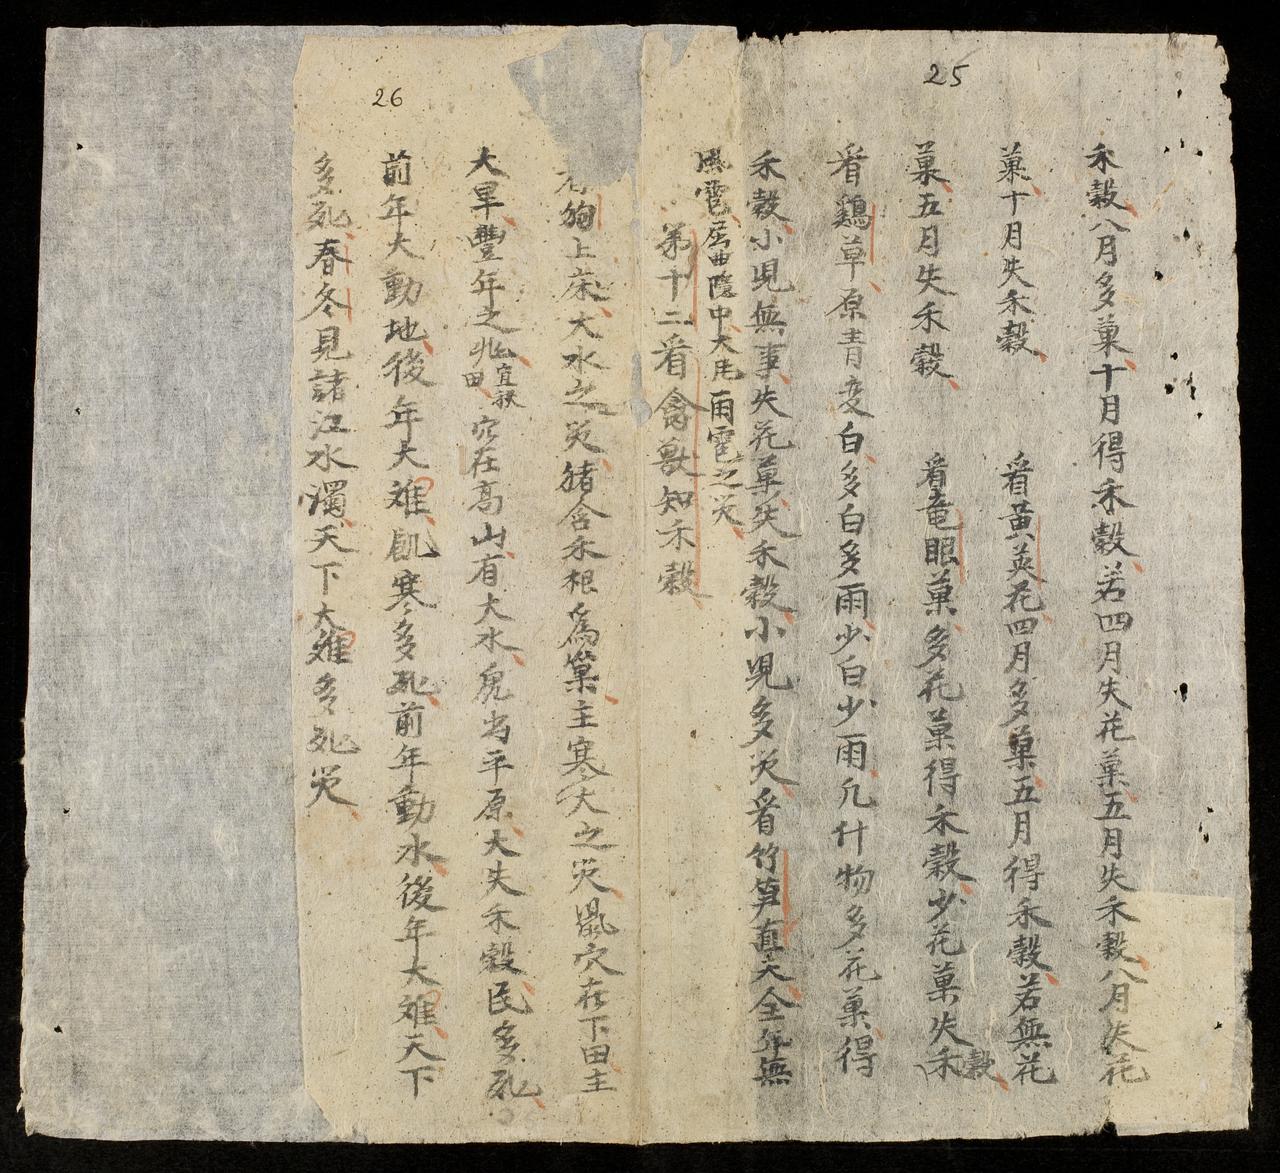 25
禾穀八月多菓十月得禾穀若四月失花菓五月失禾穀八月失花
菓十月失禾穀　看黄英花四月多菓五月得禾穀若無花
菓五月失禾穀　看竜眼菓多花菓得禾穀少花菓失禾穀
看鷄草原青变白多白多雨少白少雨凡什物多花菓得
禾穀小児無事失花菓失禾穀小児多災看竹笋直大全年無
風雹屈曲隠中大風雨雹之災
第十二看禽獸知禾穀
26
狗上床大水之災猪含禾根爲巢主寒大之災鼠穴在下田主
大旱豐年之兆也宜扶田穴在高山有大水鬼出平原大失禾穀民多死
前年大動地後年大难飢寒多死前年動水後年大难天下
多死春冬見諸江水濁天下大难多死災